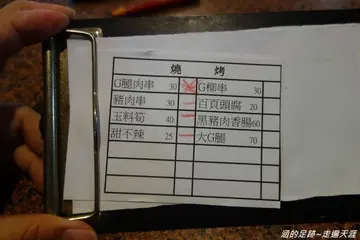 燒 烤
G腿肉串 30 G柳串 30
豬肉串 30 百頁頭腐 20
玉料筍 40 黑豬肉香腸60
甜不辣 25 大G腿 70
涵的足跡~走遍天涯